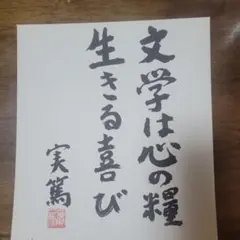 文学は心の糧
生きる喜び
実篤